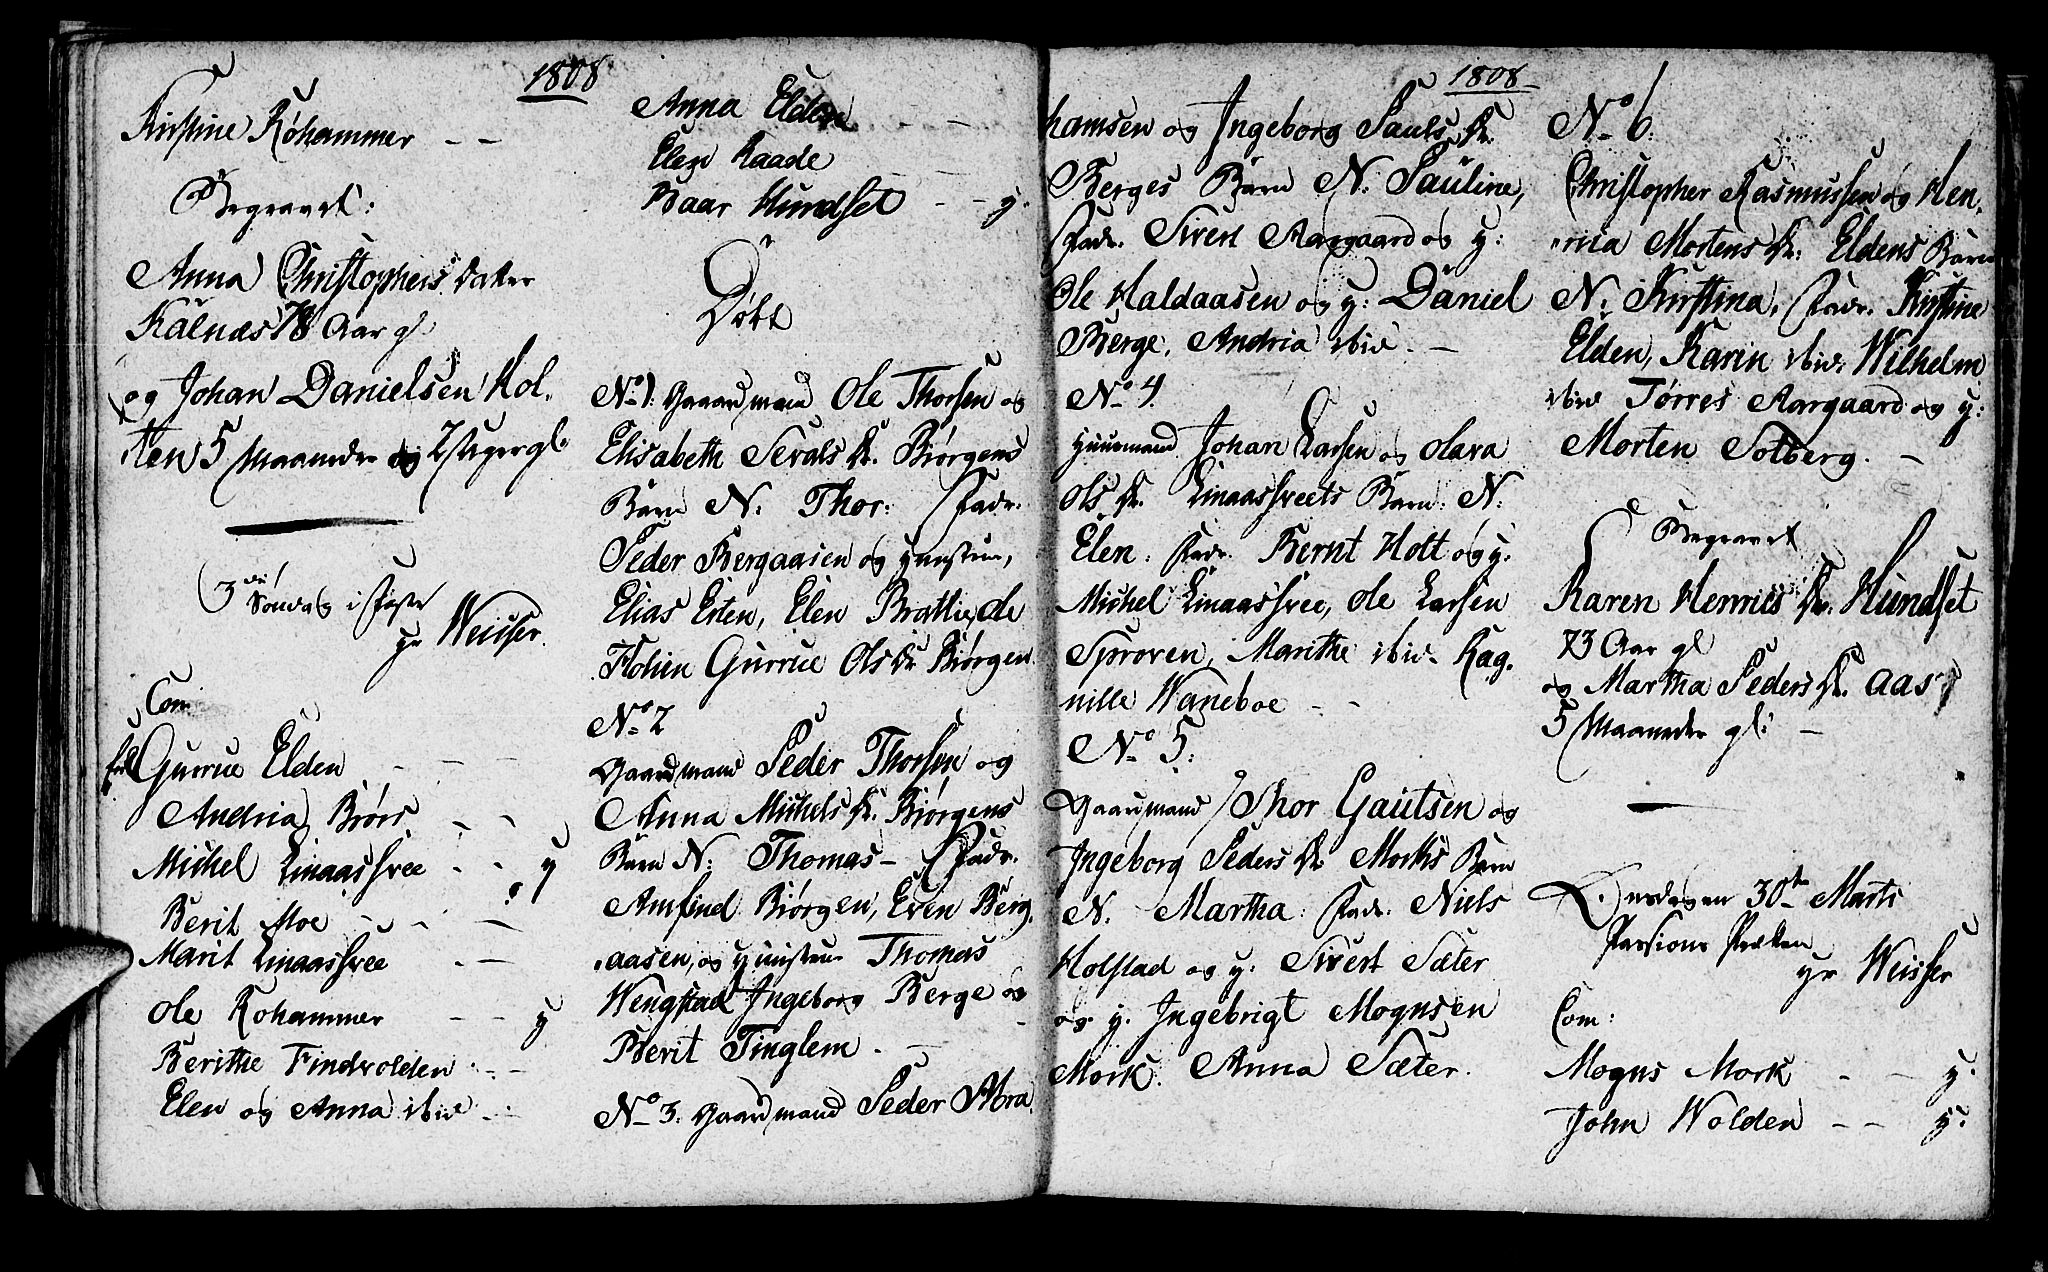 1808
Kirstine Røhammer - -
Begravet:
Anna Christophers datter
Kalnæs 78 Aar gl
og Johan Danielsen Hol-
ten 5 Maaneder og 2 Uger gl.
3die Søndag i Faste
Hr Weisser.
Com
Gurrue Elden - - -
Andria Biørs - -
Michel Linaassvee - - y
Berit Moe - - -
Marit Linaassvee - -
Ole Rohammer - - y
Berithe Findvolden - -
Elen og Anna ibid - -
Anna Elden - -
Elen Raade - -
Baar Hundset - - y.
Døbt
No 1. Gaardmand Ole Thorsen og
Elisabeth Sivals Dr. Biørgens
Barn N. Thor. Fadr.
Peder Bergaasen og Hustrue,
Elias Esten, Elen Brattie, de
Floien Gurrue Ols Dr Biørgen
No 2
Gaardmand Peder Thorsen og
Anna Michels Dr. Biørgens
Barn N: Thomas - Fadr.
Amfind Biørgen, Even Berg-
aasen, og Hustrue Thomas
Wengstad Ingeborg Berge og
Berit Tinglem. -
No 3. Gaardmand Peder Abra
1808
hamsen og Ingeborg Pauls Dr.
Berges Barn N. Pauline,
Fadr. Sivert Aargaard og y:
Ole Haldaasen og y: Daniel
Berge, Andria ibid. -
No 4.
Huusmand Johan Larsen og Olava
Ols Dr. Linaassveets Barn. N.
Elen. Fadr. Bernt Holt og y.
Michel Linaassvee, Ole Larsen
Sprøven, Marithe ibid. Rag-
nille Waneboe - -
No 5.
Gaardmand Thor Gautsen og
Ingeborg Peders Dr Morks Barn
N. Martha. Fadr. Niels
Holstad og y. Sivert Sæter
og y. Ingebrigt Mognsen
Mork. Anna Sæter.
No 6.
Christopher Rasmussen og Hen-
rica Mortens Dr. Eldens Barn
N. Kirstina. Fadr. Kirstine
Elden, Karin ibid. Wilhelm
ibid Tørres Aargaard og y:
Morten Solberg. -
Begravet
Karen Henrics Dr. Hundset
73 Aar gl
og Martha Peders Dr. Aas
5 Maaneder gl: -
Onsdagen 30te Marts
Passions Prækken
Hr Weisser
Com:
Mogns Mork - - y.
John Wolden - - y.